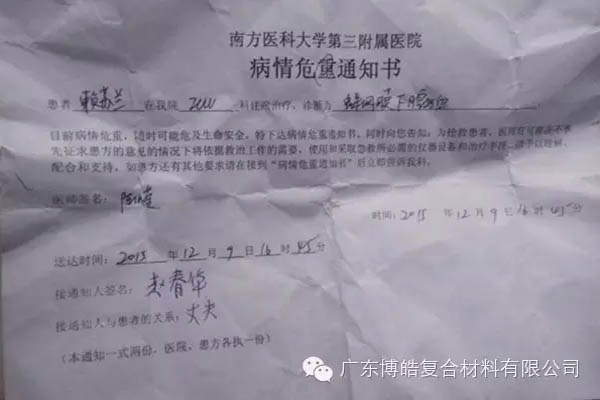 南方医科大学第三附属医院
病情危重通知书
患者 赖苏兰 在我院 ICU 科住院治疗，诊断为 蛛网膜下腔出血
目前病情危重，随时可能危及生命安全，特下达病情危重通知书，同时向您告知：为抢救患者，医院在可能在不事
先征求患方的意见的情况下将依据救治工作的需要，使用和采取急救所必需的仪器设备和治疗手段，请予以理解、
配合和支持，如患方还有其他要求请在接到“病情危重通知书”后立即告诉我科。
医师签名：
时间：2015 年 12 月 9 日 16 时 45 分
送达时间：2015 年 12 月 9 日 16 时 45 分
接通知人签名：赵春华
接通知人与患者的关系：丈夫
（本通知一式两份，医院、患方各执一份）
广东博皓复合材料有限公司